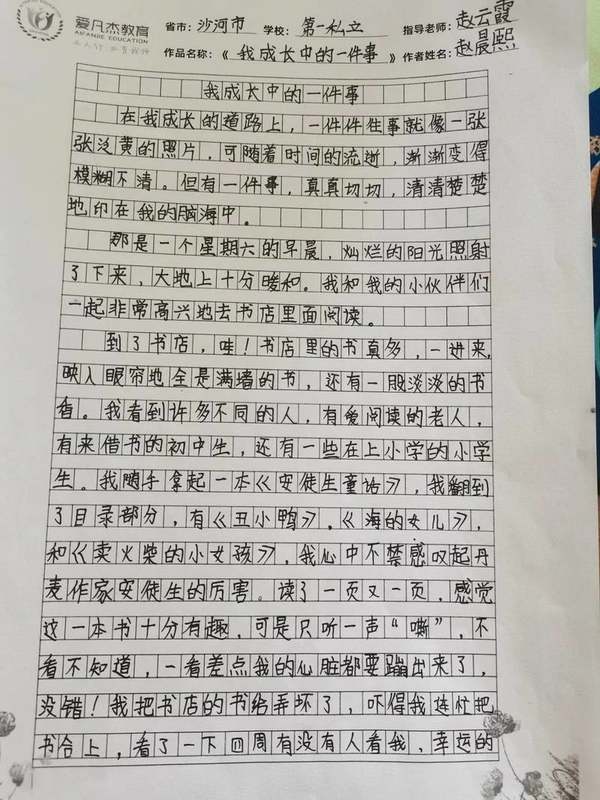 爱凡杰教育
AIFANJIE EDUCATION
省市：沙河市 学校：第一私立 指导老师：赵云霞
作品名称：《我成长中的一件事》作者姓名：赵晨熙
我成长中的一件事
在我成长的道路上，一件件往事就像一张
张泛黄的照片，可随着时间的流逝，渐渐变得
模糊不清。但有一件事，真真切切，清清楚楚
地印在我的脑海中。
那是一个星期六的早晨，灿烂的阳光照射
了下来，大地上十分暖和。我和我的小伙伴们
一起非常高兴地去书店里面阅读。
到了书店，哇！书店里的书真多，一进来，
映入眼帘地全是满墙的书，还有一股淡淡的书
香。我看到许多不同的人，有爱阅读的老人，
有来借书的初中生，还有一些在上小学的小学
生。我随手拿起一本《安徒生童话》，我翻到
了目录部分，有《丑小鸭》，《海的女儿》，
和《卖火柴的小女孩》，我心中不禁感叹起丹
麦作家安徒生的厉害。读了一页又一页，感觉
这一本书十分有趣，可是只听一声“嘶”，不
看不知道，一看差点我的心脏都要蹦出来了，
没错！我把书店的书给弄坏了，吓得我连忙把
书合上，看了一下四周有没有人看我，幸运的